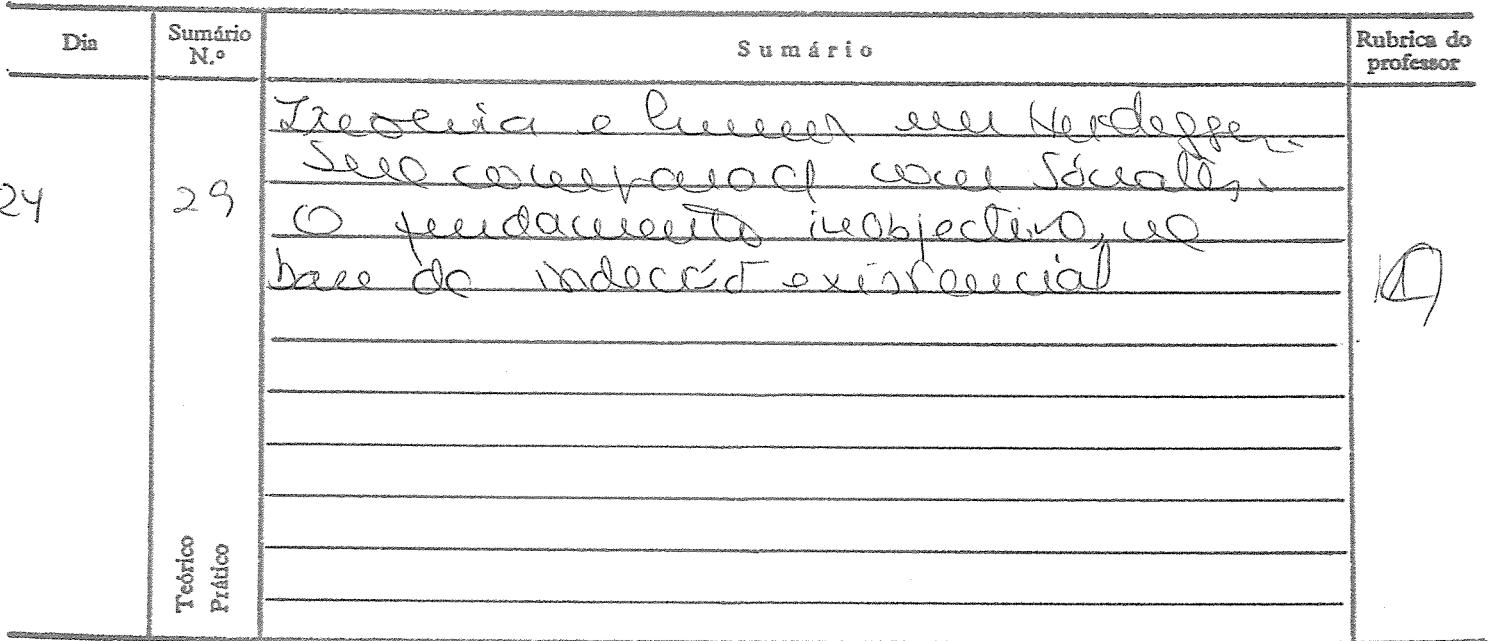 Dia Sumário N.º Sumário Rubrica do professor
24 29
Ironia e humor em Heidegger.
Sua comparação com Sócrates.
O fundamento inobjectivo, na
base da existencial
Teórico
Prático